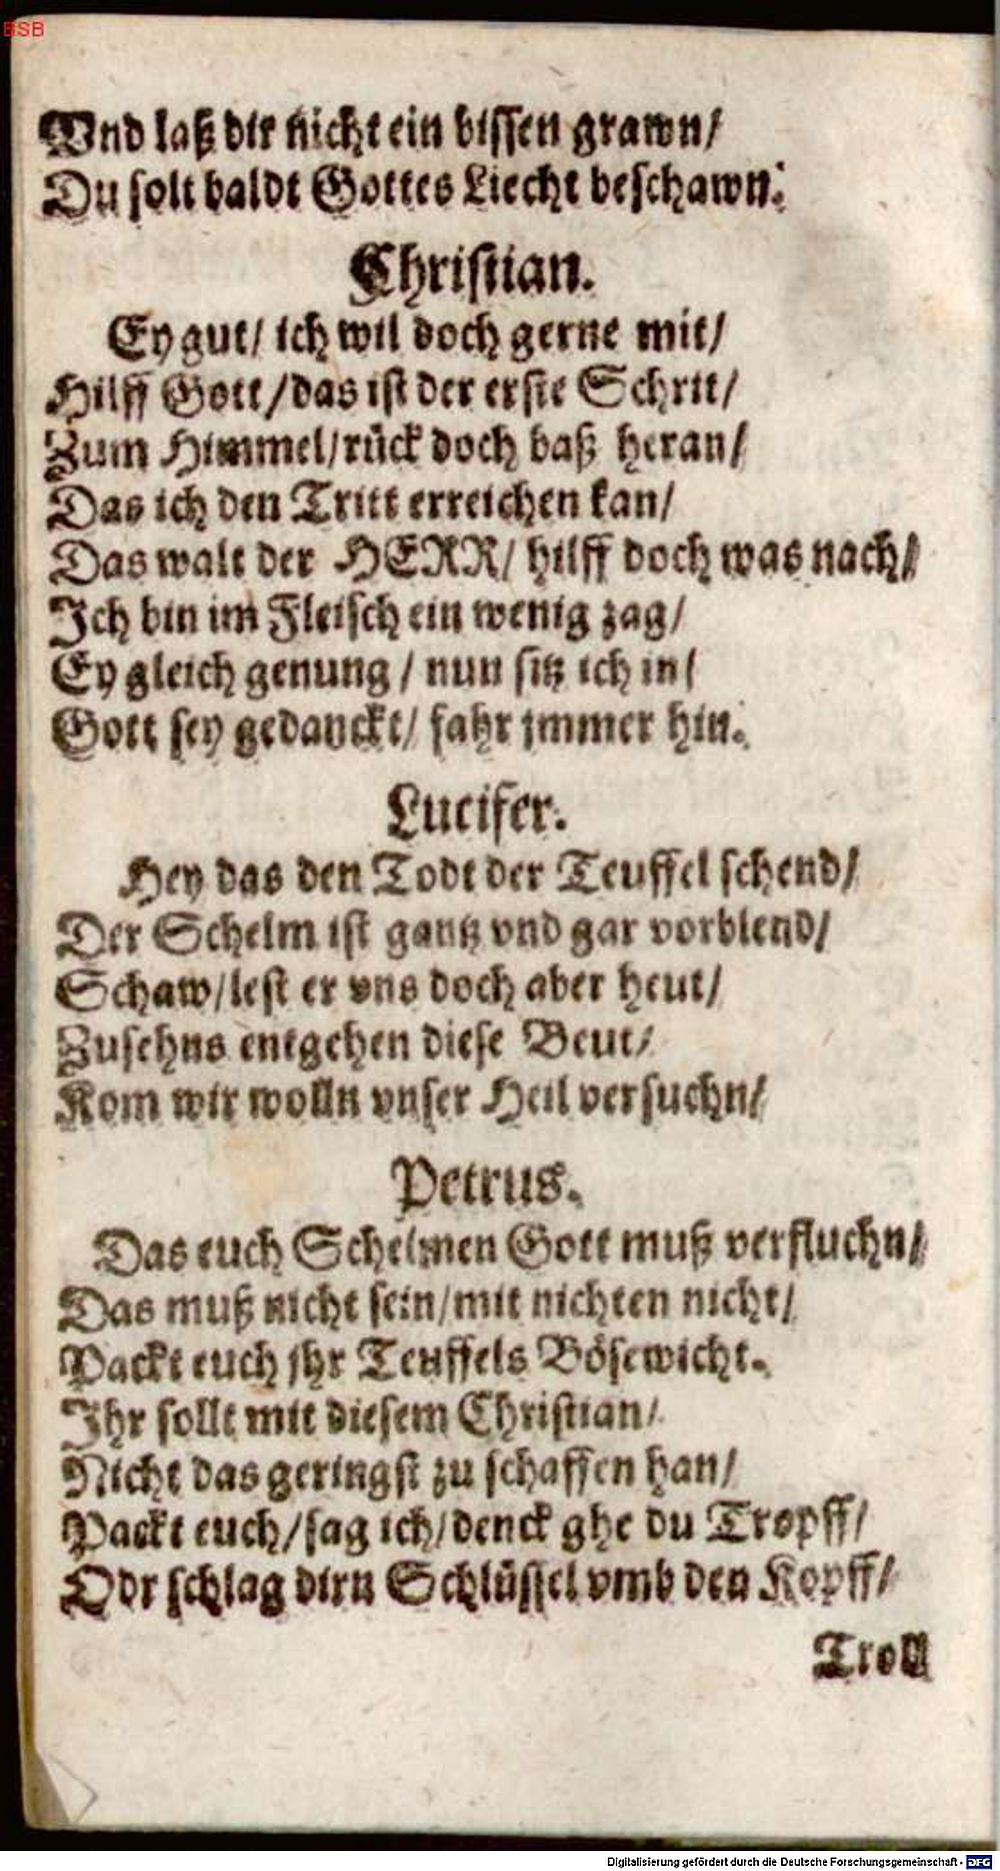 BSB
Vnd laß dir nicht ein bissen grawn/
Du solt baldt Gottes Liecht beschawn.
Christian.
Ey gut/ ich wil doch gerne mit/
Hilff Gott/das ist der erste Schrit/
Zum Himmel/rück doch baß heran/
Das ich den Tritt erreichen kan/
Das walt der HERR/ hilff doch was nach/
Ich bin im Fleisch ein wenig zag/
Ey gleich genung / nun sitz ich in/
Gott sey gedanckt/ fahr jmmer hin.
Lucifer.
Hey das den Todt der Teuffel schend/
Der Schelm ist gantz vnd gar vorblend/
Schaw/lest er vns doch aber heut/
Zusehns entgehen diese Beut/
Kom wir wolln vnser Heil versuchn/
Petrus.
Das euch Schelmen Gott muß verfluchn/
Das muß nicht sein/mit nichten nicht/
Packt euch jhr Teuffels Bösewicht.
Ihr sollt mit diesem Christian/
Nicht das geringst zu schaffen han/
Packt euch/sag ich/denck ghe du Tropff/
Odr schlag dirn Schlüssel vmb den Kopff/
Troll
Digitalisierung gefördert durch die Deutsche Forschungsgemeinschaft - DFG